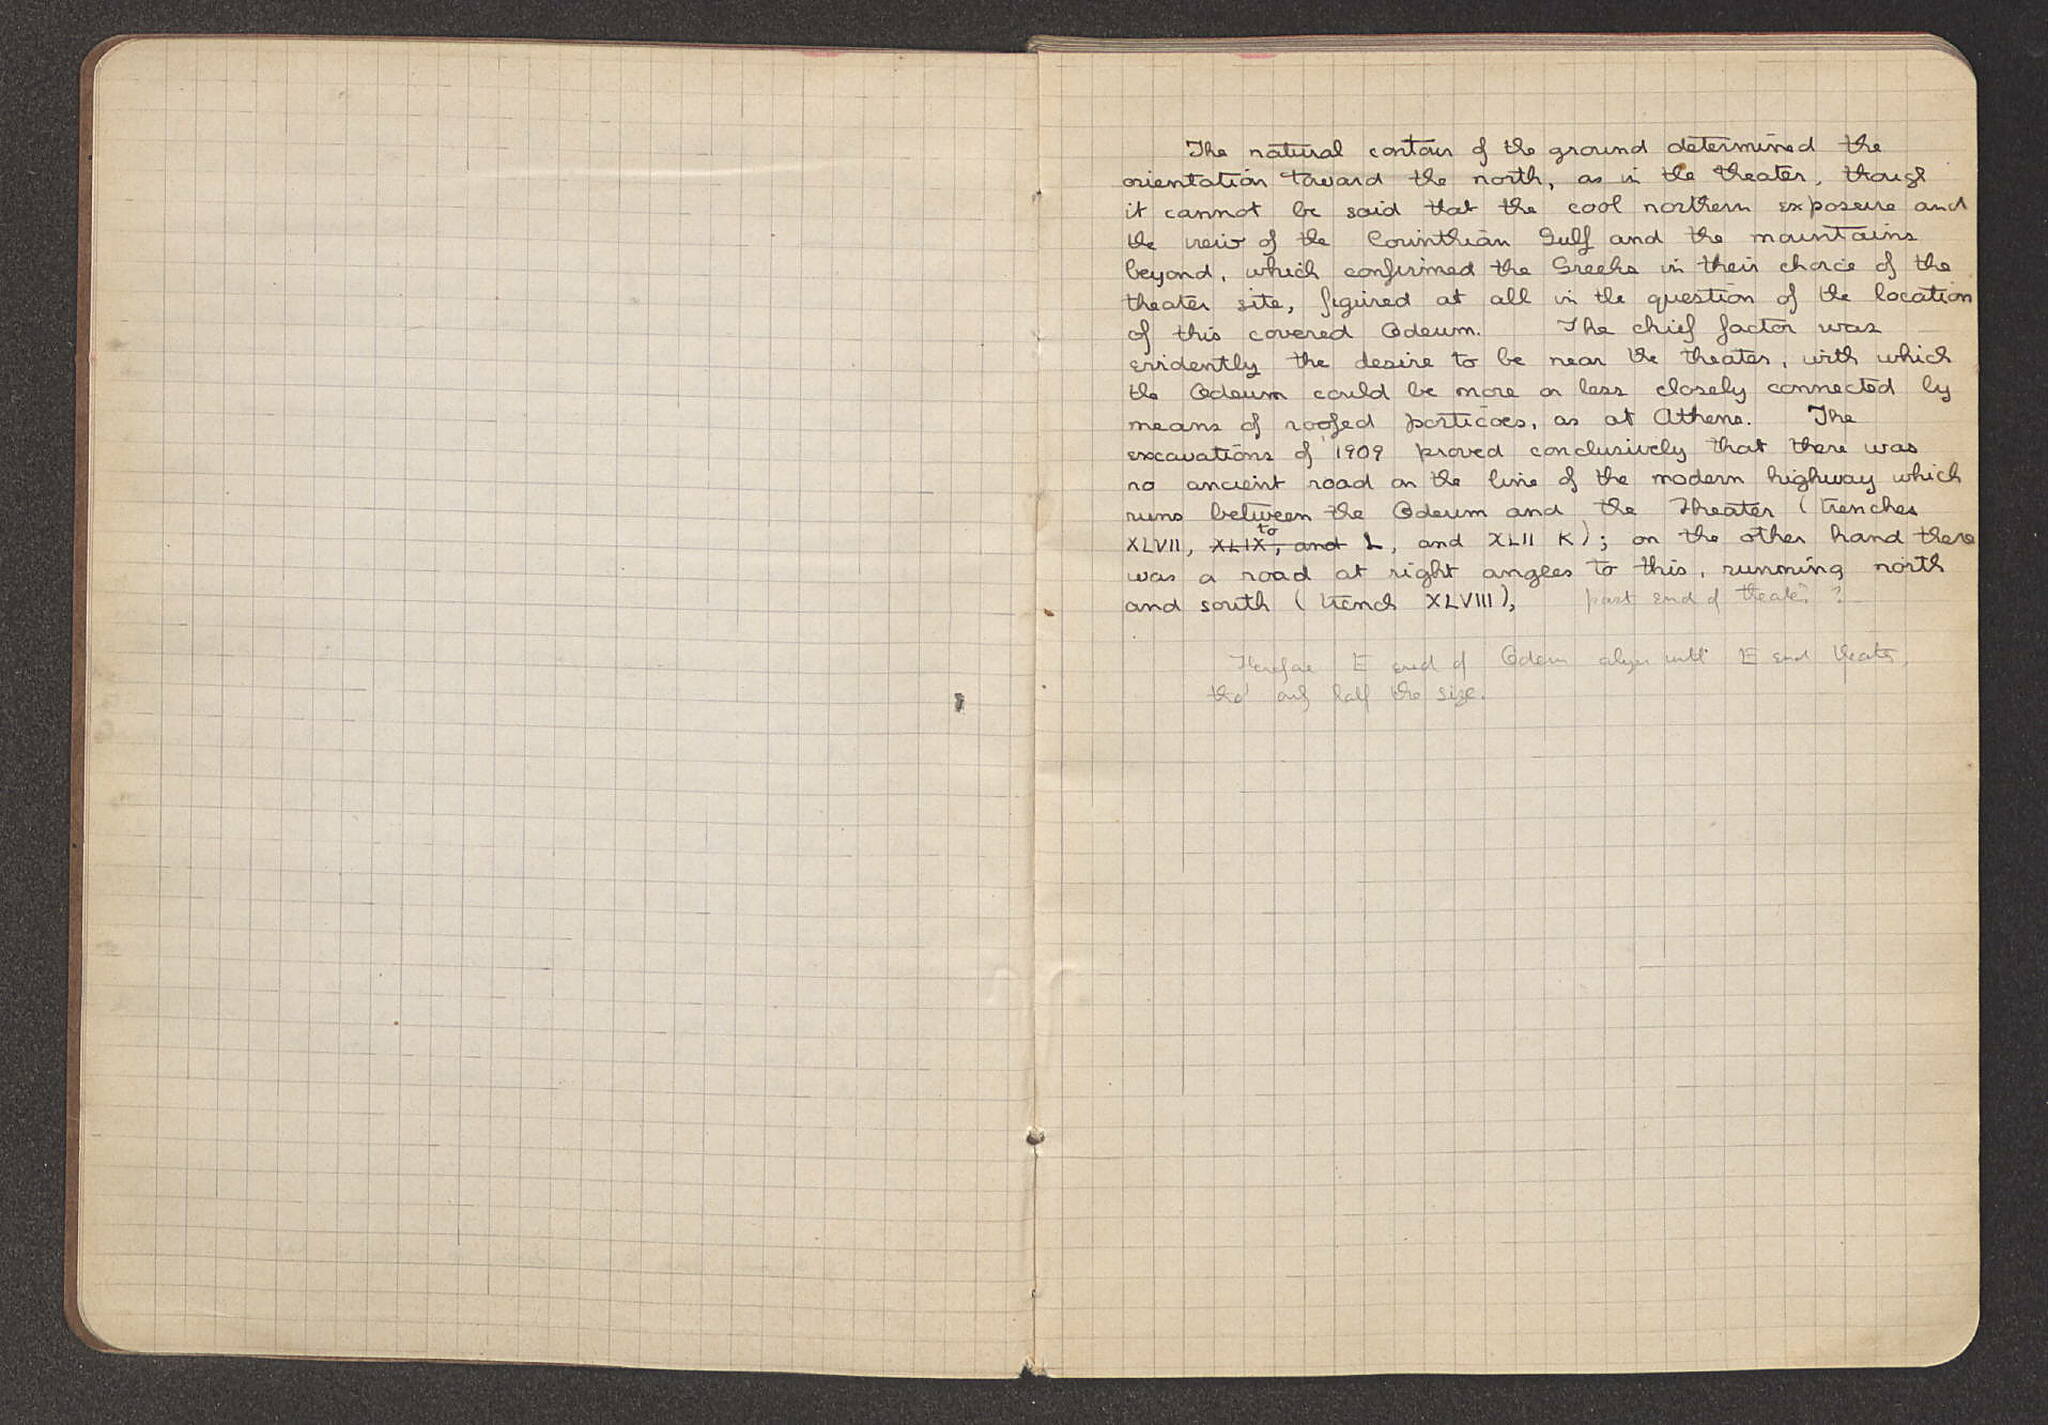 The natural contour of the ground determined the
orientation toward the north, as in the theater, though
it cannot be said that the cool northern exposure and
the view of the Corinthian Gulf and the mountains
beyond, which confirmed the Greeks in their choice of the
theater site, figured at all in the question of the location
of this covered Odeum. The chief factor was
evidently the desire to be near the theater, with which
the Odeum could be more or less closely connected by
means of roofed porticoes, as at Athens. The
excavations of 1909 proved conclusively that there was
no ancient road on the line of the modern highway which
runs between the Odeum and the Theater (trenches
to
XLVII, XLIX, and L, and XLII K); on the other hand there
was a road at right angles to this, running north
and south (trench XLVIII), past end of theater?
Therefore E end of Odeum aligns with E end theater,
tho' only half the size.